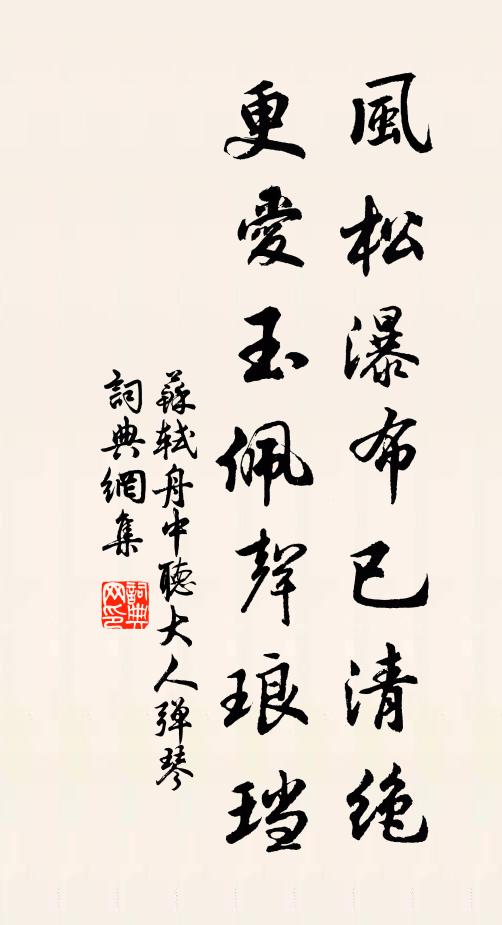 風松瀑布已清絶
更愛玉佩聲琅璫
蘇軾舟中聽大人弹琴
詞典網集
詞典网印